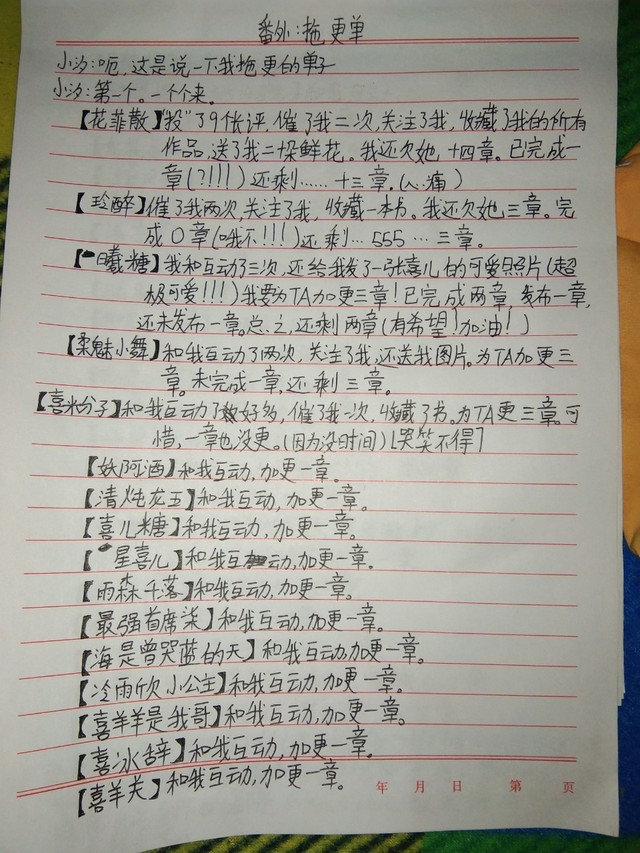 番外:拖更单
小汐:呃,这是说一下我拖更的单子
小汐:第一个。一个个来。
【花菲散】“投”了9个张评,催了我二次,关注了我,收藏了我的所有
作品,送了我二垛鲜花。我还欠她十四章。已完成一
章(?!!!)还剩……十三章.(心痛)
【玲醉】催了我两次,关注了我,收藏一本书。我还欠她三章。完
成0章(哦不!!!)还剩…555…三章.
【曦糖】我和互动了三次,还给我发了一张喜儿的可爱照片(超
极可爱!!!)我要为TA加更三章!已完成两章,发布一章,
还未发布一章。总之,还剩两章(有希望!加油!)
【柔魅小舞】和我互动了两次,关注了我,还送我图片。为TA加更三
章。未完成一章,还剩三章。
【喜米分子】和我互动了好多,催了我一次,收藏了书。为TA更三章.可
惜,一章也没更。(因为没时间)[哭笑不得]
【妖阿酒】和我互动,加更一章。
【清炖龙王】和我互动,加更一章。
【喜儿糖】和我互动,加更一章。
【星喜儿】和我互动,加更一章。
【雨森千落】和我互动,加更一章。
【最强首席柒】和我互动,加更一章。
【海是曾哭蓝的天】和我互动,加更一章。
【冷雨欣小公主】和我互动,加更一章。
【喜羊羊是我哥】和我互动,加更一章。
【喜冰辞】和我互动,加更一章。
【喜羊关】和我互动,加更一章。
年 月 日 第 页